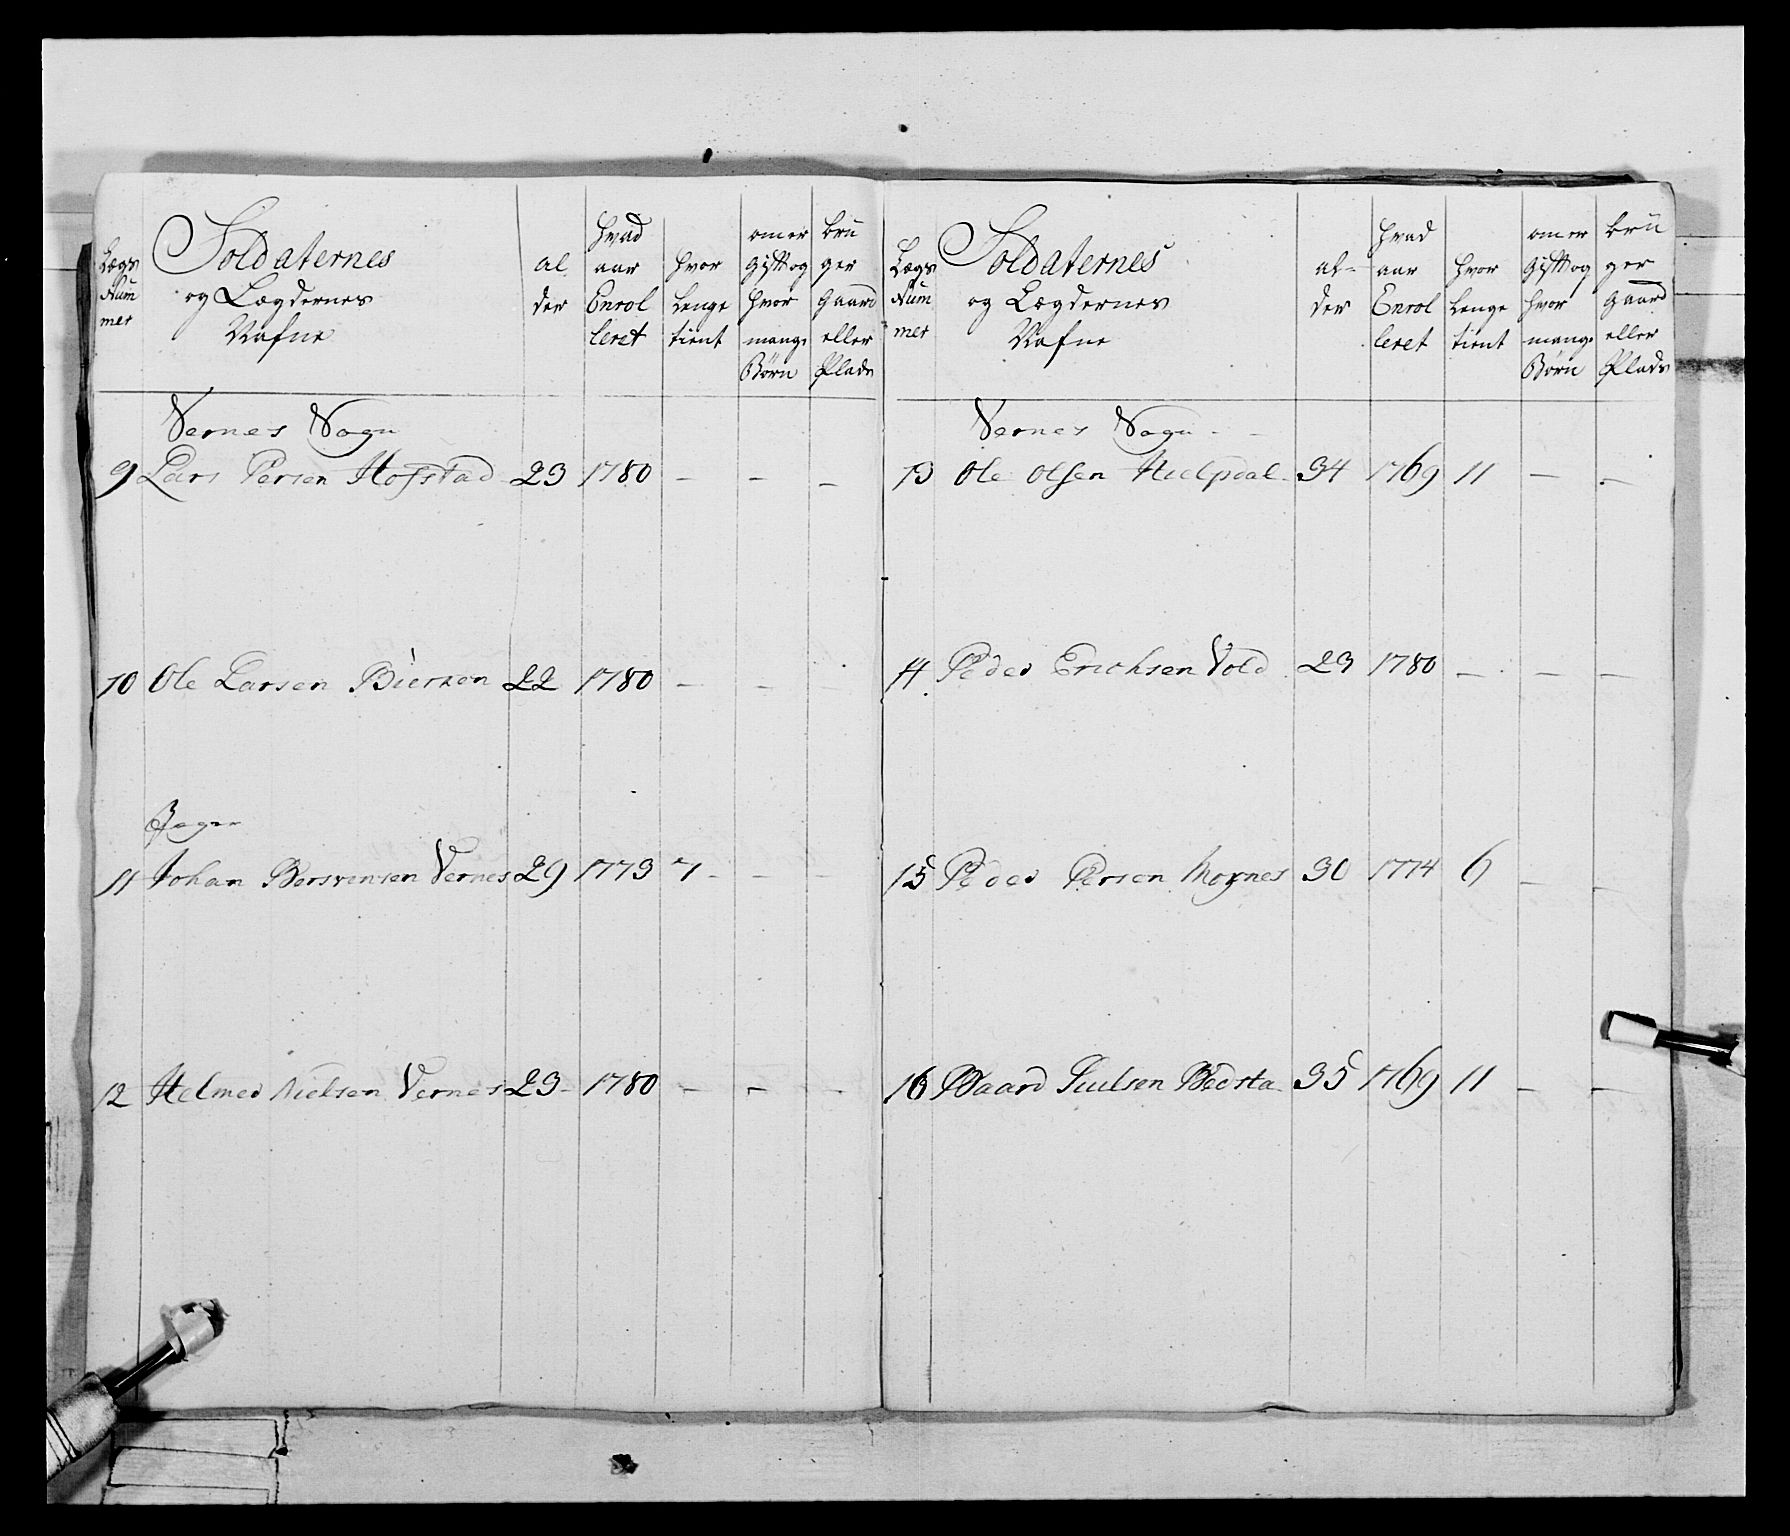 Lægs Nummer | Soldaternes og Lægdernes Nafne | alder | hvad aar Enrolleret | hvor Lenge tient | om er Gift og hvor mange Børn | bruger Gaard eller Plads
Vernes Sogn
9 Lars Persen Hofstad 23 1780 - - -
10 Ole Larsen Bierkan 22 1780 - - -
Jæger
11 Johan Bersvensen Vernes 29 1773 7 - - -
12 Helmer Nielsen Vernes 23 - 1780 - - -
Lægs Nummer | Soldaternes og Lægdernes Nafne | alder | hvad aar Enrolleret | hvor Lenge tient | om er Gift og hvor mange Børn | bruger Gaard eller Plads
Vernes Sogn
13 Ole Olsen Hielpdal 34 1769 11 - -
14 Peder Erichsen Vold 23 1780 - - -
15 Peder Persen Moxnes 30 1774 6 - -
16 Baard Juulsen Redsta 35 1769 11 - -